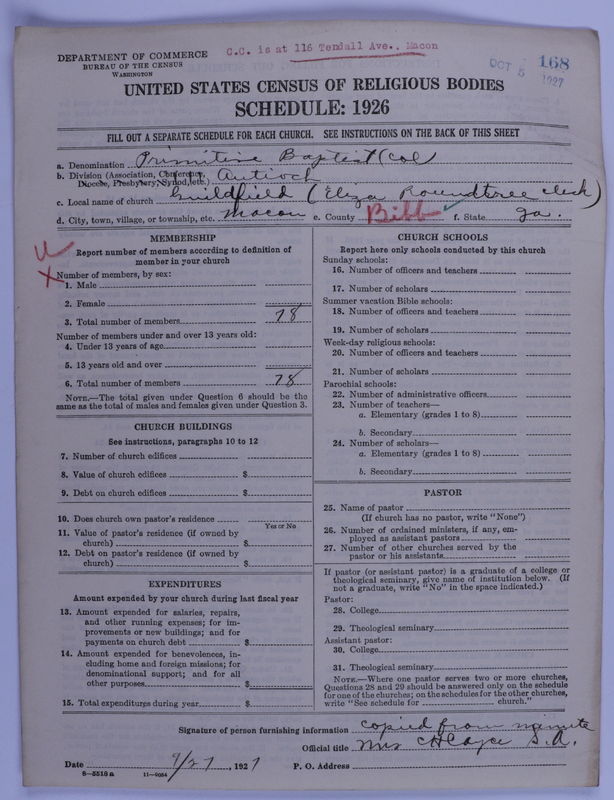 C.C. is at 116 Tendall Ave., Macon
DEPARTMENT OF COMMERCE
BUREAU OF THE CENSUS
WASHINGTON
OCT 5 1927
168
UNITED STATES CENSUS OF RELIGIOUS BODIES
SCHEDULE: 1926
FILL OUT A SEPARATE SCHEDULE FOR EACH CHURCH. SEE INSTRUCTIONS ON THE BACK OF THIS SHEET
a. Denomination Primitive Baptist (Col
b. Division (Association, Conference, Diocese, Presbytery, Synod, etc.) Antioch
c. Local name of church Guildfield (Eliza Roundtree clerk)
d. City, town, village, or township, etc. Macon e. County Bibb f. State Ga.
MEMBERSHIP
Report number of members according to definition of
member in your church
Number of members, by sex:
1. Male
2. Female
3. Total number of members 78
Number of members under and over 13 years old:
4. Under 13 years of age
5. 13 years old and over
6. Total number of members 78
NOTE.—The total given under Question 6 should be the
same as the total of males and females given under Question 3.
CHURCH BUILDINGS
See instructions, paragraphs 10 to 12
7. Number of church edifices
8. Value of church edifices $
9. Debt on church edifices $
10. Does church own pastor's residence
Yes or No
11. Value of pastor's residence (if owned by
church) $
12. Debt on pastor's residence (if owned by
church) $
EXPENDITURES
Amount expended by your church during last fiscal year
13. Amount expended for salaries, repairs,
and other running expenses; for im-
provements or new buildings; and for
payments on church debt $
14. Amount expended for benevolences, in-
cluding home and foreign missions; for
denominational support; and for all
other purposes $
15. Total expenditures during year $
CHURCH SCHOOLS
Report here only schools conducted by this church
Sunday schools:
16. Number of officers and teachers
17. Number of scholars
Summer vacation Bible schools:
18. Number of officers and teachers
19. Number of scholars
Week-day religious schools:
20. Number of officers and teachers
21. Number of scholars
Parochial schools:
22. Number of administrative officers
23. Number of teachers—
a. Elementary (grades 1 to 8)
b. Secondary
24. Number of scholars—
a. Elementary (grades 1 to 8)
b. Secondary
PASTOR
25. Name of pastor
(If church has no pastor, write "None")
26. Number of ordained ministers, if any, em-
ployed as assistant pastors
27. Number of other churches served by the
pastor or his assistants
If pastor (or assistant pastor) is a graduate of a college or
theological seminary, give name of institution below. (If
not a graduate, write "No" in the space indicated.)
Pastor:
28. College
29. Theological seminary
Assistant pastor:
30. College
31. Theological seminary
NOTE.—Where one pastor serves two or more churches,
Questions 28 and 29 should be answered only on the schedule
for one of the churches; on the schedules for the other churches,
write "See schedule for church."
Signature of person furnishing information copied from minute
Official title Mrs S.A.
Date 9/27, 1927 P. O. Address
8-5518a 11-9054